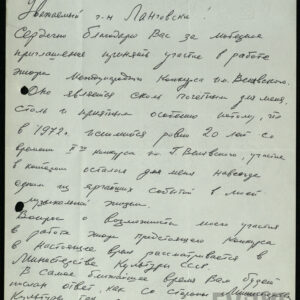 Уважаемый г-н Лантовски
Сердечно благодарю Вас за любезное
приглашение принять участие в работе
жюри Международного Конкурса им. Венявского.
Оно является столь почетным для меня,
столь и приятным особенно потому, что
в 1972г. исполнится ровно 20 лет со
времени II° конкурса им. Г. Венявского, участие
в котором осталось для меня навсегда
одним из ярчайших событий в моей
музыкальной жизни.
Вопрос о возможности моего участия
в работе жюри предстоящего Конкурса
в настоящее время рассматривается в
Министерстве Культуры СССР.
В самое ближайшее время Вам будет
послан ответ как со стороны Министерства
Культуры, так